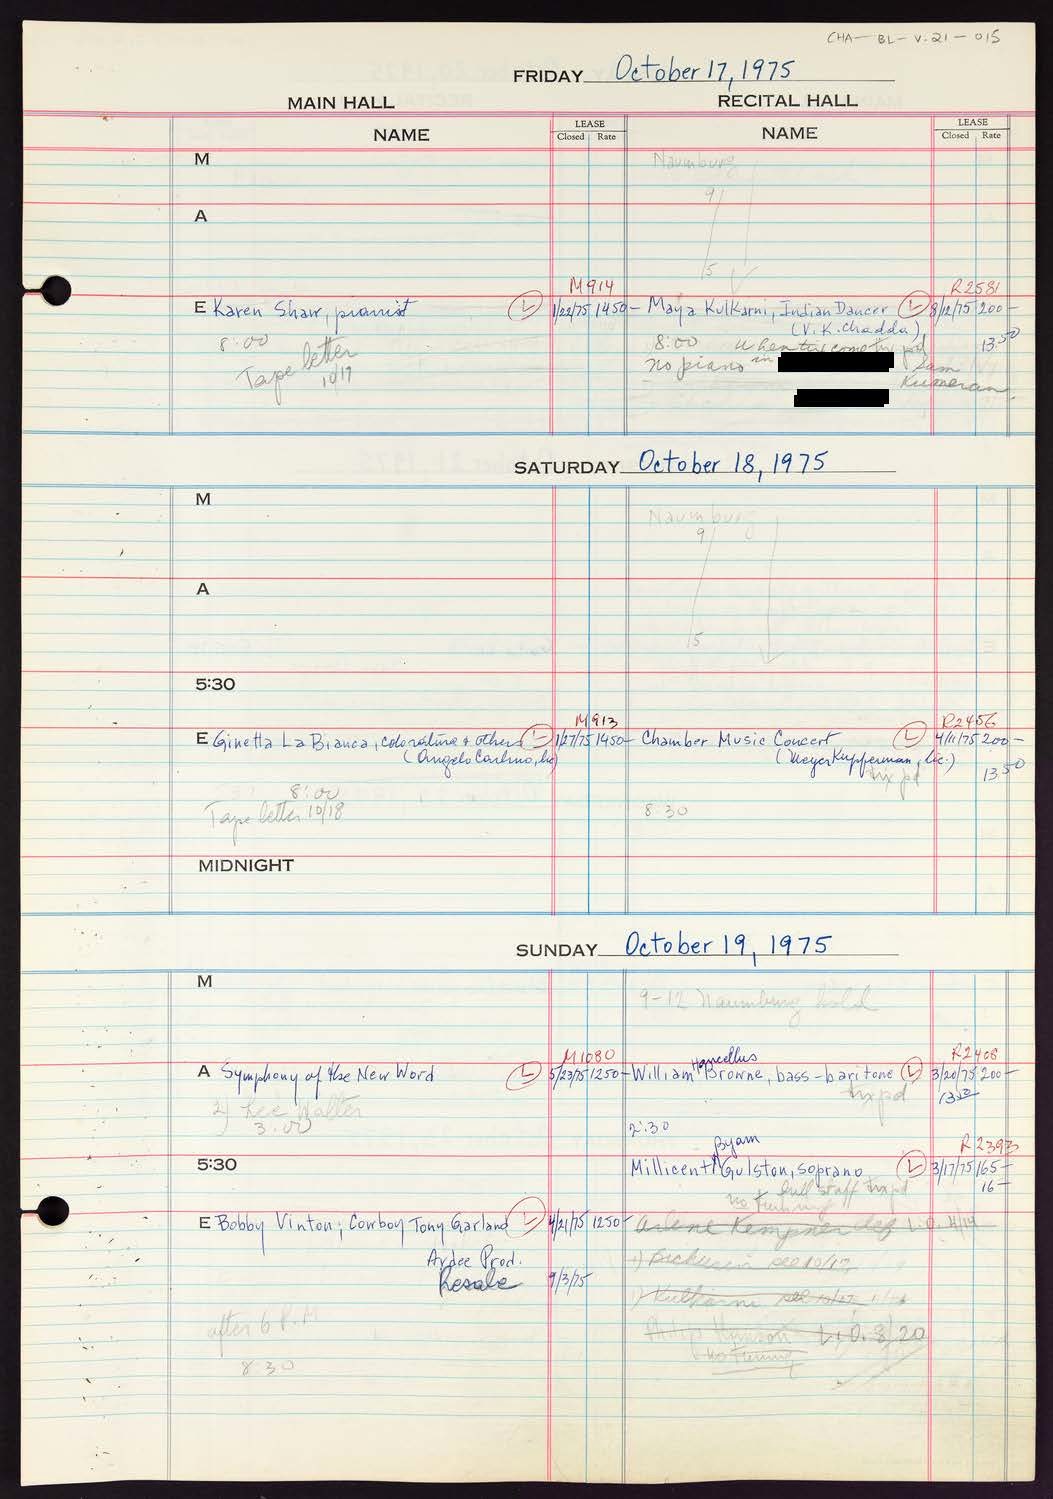 CHA-BL-V.21-015
FRIDAY October 17, 1975
MAIN HALL RECITAL HALL
NAME LEASE Closed Rate NAME LEASE Closed Rate
M Naumburg
9
A
5
M914 R2581
E Karen Shaw, pianist L 1/22/75 1450- Maya Kulkarni, Indian Dancer L 8/12/75 200-
(V.K. Chadda)
8:00 8:00 when tix come in pd 13.50
Tape letter no piano Sam
10/17 Kumeran
SATURDAY October 18, 1975
M Naumburg
9
A
5
5:30
M913 R2456
E Ginetta La Bianca, coloratura & others L 1/27/75 1450- Chamber Music Concert L 4/11/75 200-
(Angelo Carlino, lic) (Meyer Kupferman, lic.)
tix pd 13.50
8:00
Tape letter 10/18 8:30
MIDNIGHT
SUNDAY October 19, 1975
M 9-12 Naumburg hold
M1080 Hancellus R2408
A Symphony of the New Word L 5/23/75 1250- William Browne, bass-baritone L 3/20/75 200-
2) Lee Walter tix pd 13.50
3:00 2:30
Byam R2393
5:30 Millicent Gulston, soprano L 3/17/75 165-
full staff tix pd 16-
no tuning
E Bobby Vinton; Cowboy Tony Garland L 4/21/75 1250- Arlene Kempner
Ardee Prod. see 10/17
Resale 9/3/75
Kulkarni see 10/17
after 6 P.M L.O. 8/20
no tuning
8:30